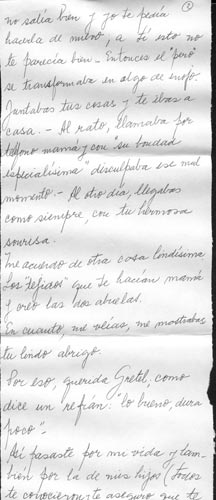 no salía bien y yo te pedía
hacerla de nuevo, a tí esto no
te parecía bien. Entonces el "pero"
se transformaba en algo de enojo.
Juntabas tus cosas y te ibas a
casa.- Al rato, llamaba por
teléfono mamá y con su bondad
"especialísima" disculpaba ese mal
momento.- Al otro día, llegabas
como siempre, con tu hermosa
sonrisa.
Me acuerdo de otra cosa lindísima
Los "tejidos" que te hacían mamá
y creo las dos abuelas.
En cuanto, me veías, me mostrabas
tu lindo abrigo.
Por eso, querida Gretel, como
dice un refrán: "lo bueno, dura
poco".-
Así pasaste por mi vida y tam-
bién por la de mis hijos (todos
te conocieron, te aseguro que te